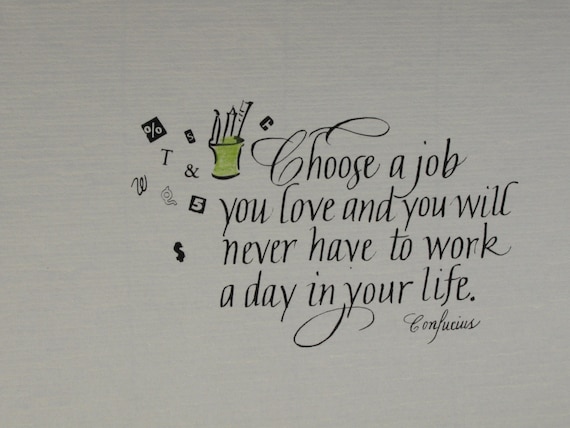 % S C
T &
W g 5
$
Choose a job
you love and you will
never have to work
a day in your life.
Confucius